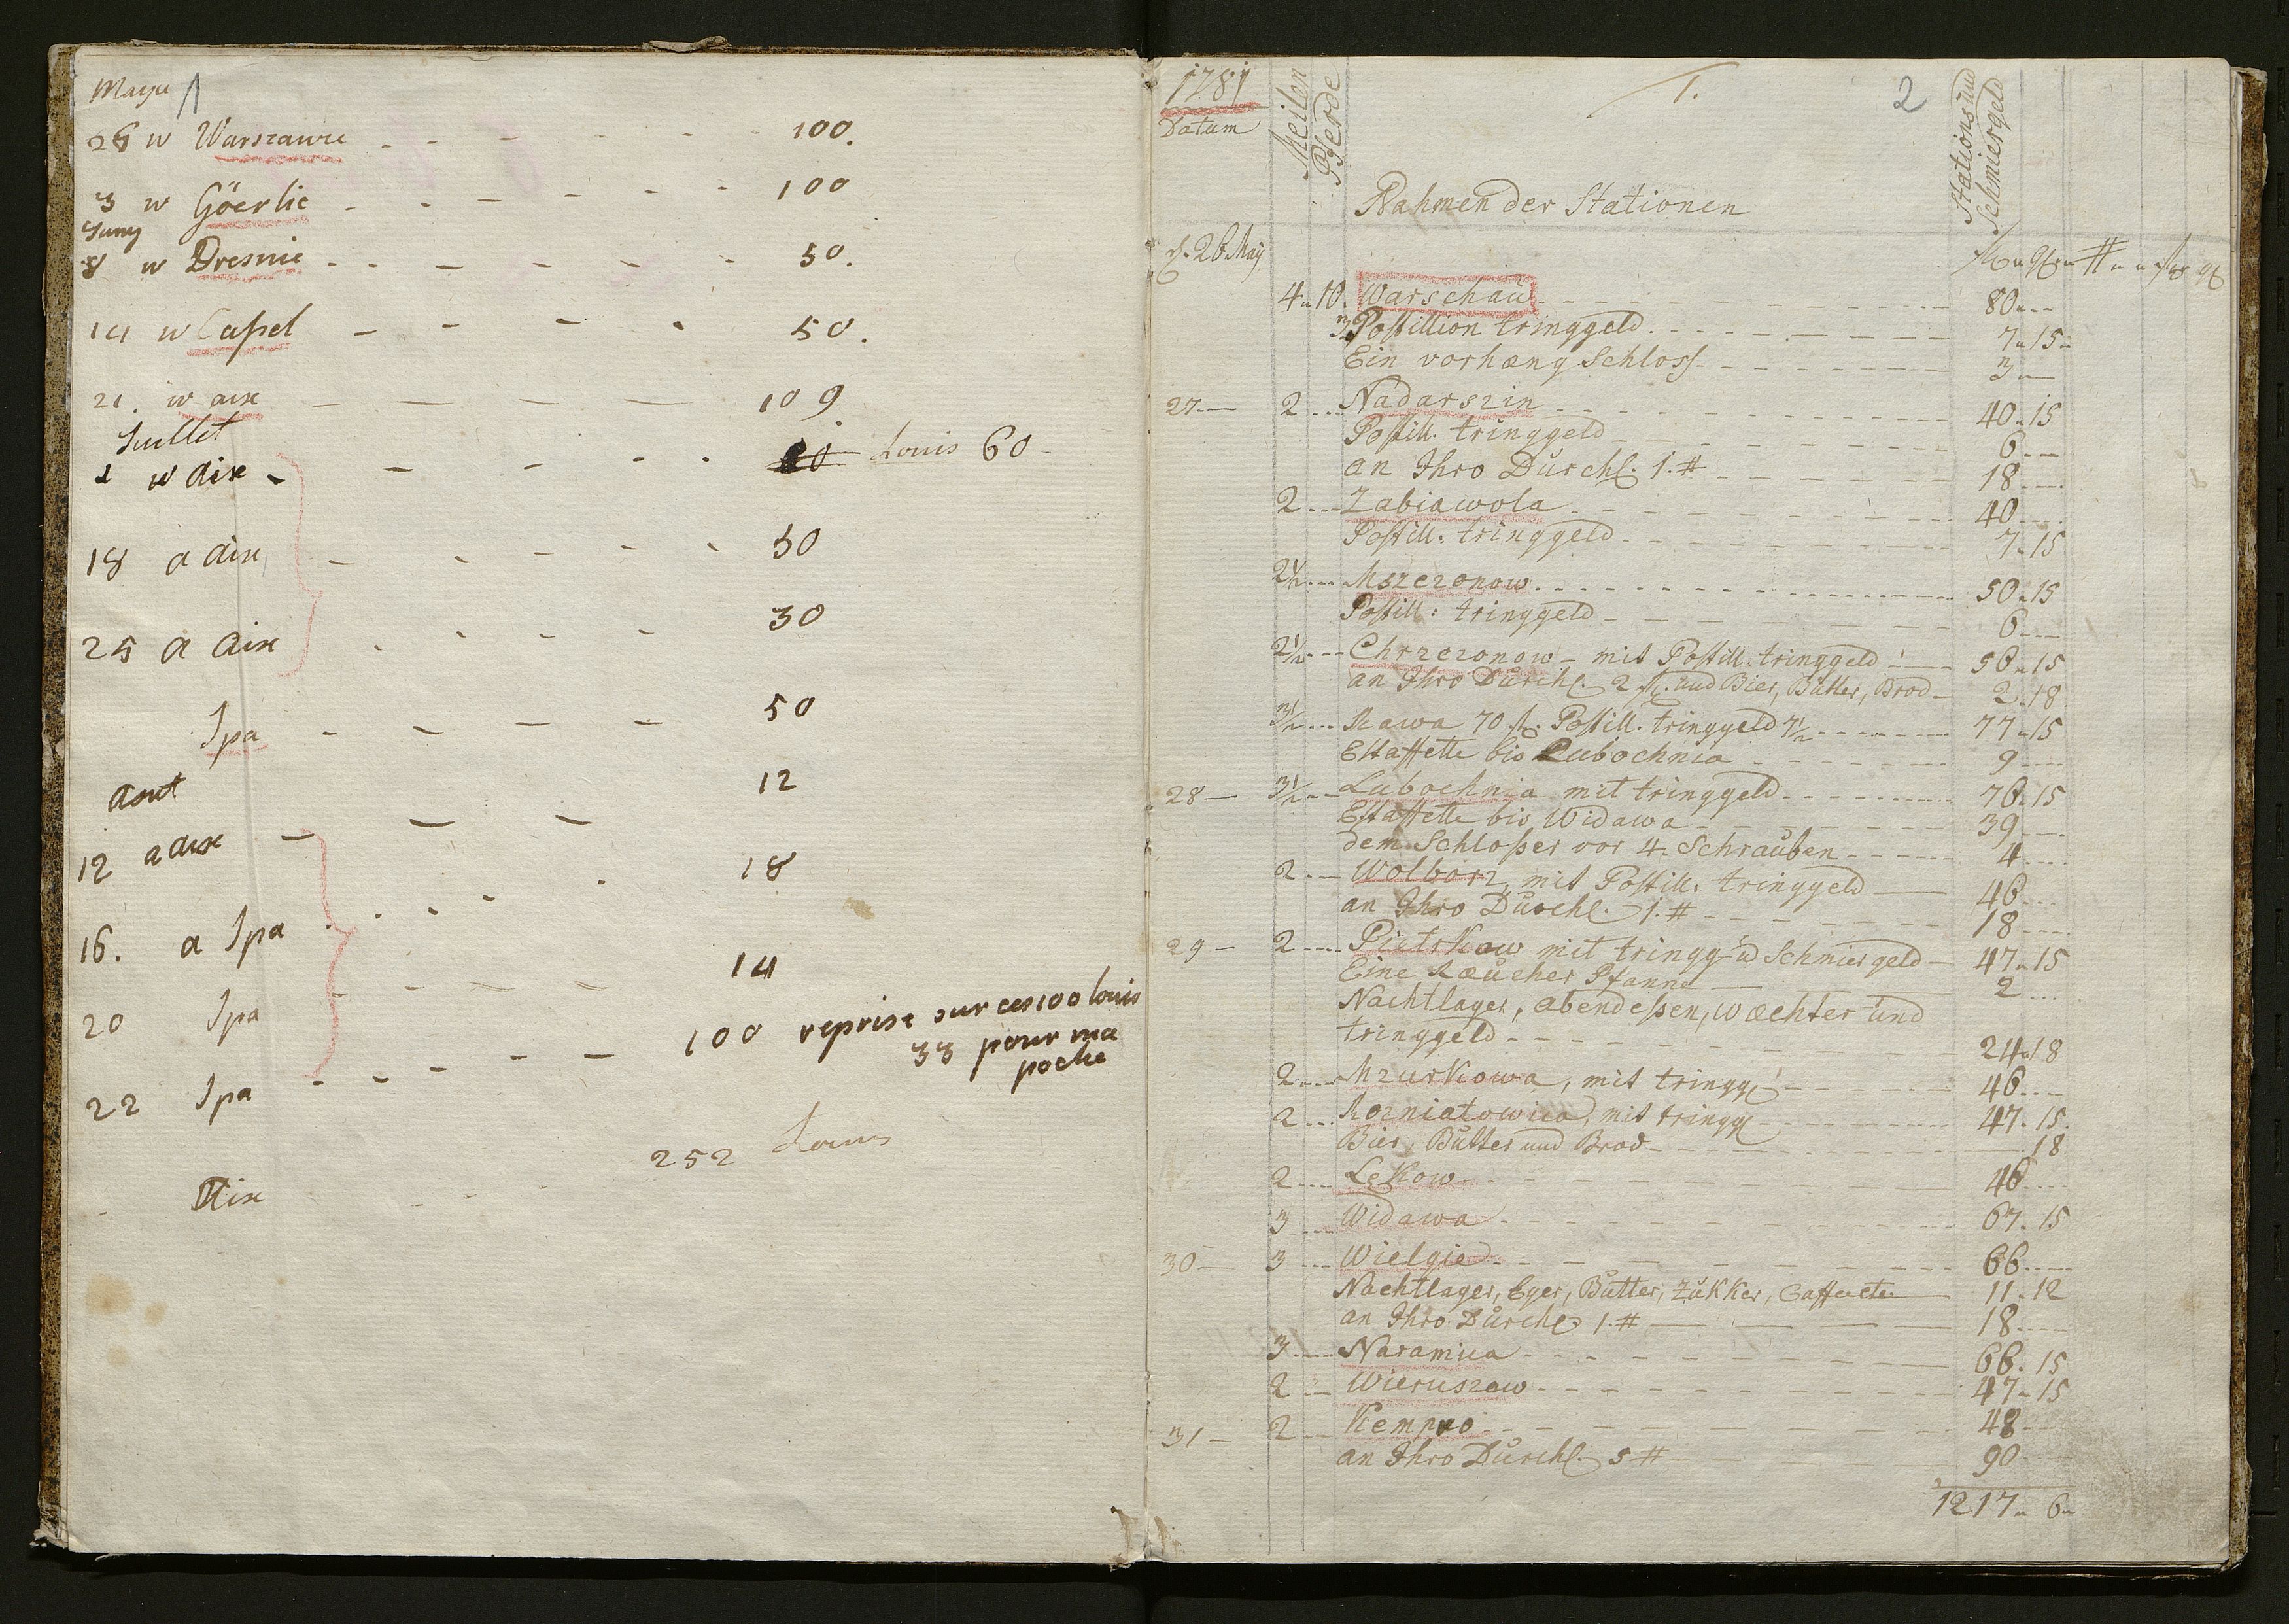 Maya 1
26 w Warszawie - - - - - 100.
3 w Göerlic - - - - - 100
Juny
8 w Dresnie - - - - - 50.
14 w Cassel - - - - 50.
21. w aix - - - - 109
Juillet
1 w Aix - - - - Louis 60-
18 a aix - - - - - 50
25 a Aix - - - - 30
Spa - - - - 50
Aout 12
12 a aix - - -
16. a Spa - - - - 18
20 Spa - - - - - 14
22 Spa - - - - - 100 reprise sur ces 100 louis
33 pour ma
poche
252 Louis
Aix - - -
1781 1. 2
Datum
Meilen
Pferde
Stations und
Schmiergeld
Nahmen der Stationen
d. 26 May
4 " 10. Warschau - - - 80 " --
3 Postillion tringgeld - - - 7 " 15 "
Ein vorhæng Schloss - - - 3 --
27 -- 2 --- Nadarszin - - - 40 " 15
Postill. tringgeld - - - 6 --
an Ihro Durchl. 1. # - - - 18 ---
2 --- Zabiawola - - - 40 ---
Postill. tringgeld - - - 7 " 15
2½ --- Mszczonow - - - 50 " 15
Postill: tringgeld - - - 6 ---
2½ --- Chrzczonow - mit Postill. tringgeld - 50 " 15
an Ihro Durchl. 2 fl. und Bier, Butter, Brod - 2 " 18
3½ --- Rawa 70 fl. Postill. tringgeld 7½ - - - 77 " 15
Estaffette bis Lubochnia - - - 9 ---
28 -- 3½ --- Lubochnia mit tringgeld - - - 76 " 15
Estaffette bis Widawa - - - 39 ---
dem Schlosser vor 4. Schrauben - - - 4 ---
2 --- Wolborz, mit Postill. tringgeld - 46 ---
an Ihro Durchl. 1. # - - - 18 ---
29 - 2 --- Piotrkow mit tringg- u Schmiergeld - 47 " 15
Eine Ræucher Pfanne - - - 2 ---
Nachtlager, abendessen, wæchter und
tringgeld - - - 24 " 18
2 --- Mzurkowa, mit tringg - - - 46 ---
2 --- Rozniatowica, mit tringg - - - 47 " 15.
Bier, Butter und Brod - - - 18
2 --- Lękow - - - 46 ---
3 --- Widawa - - - 67 " 15
30 -- 3 --- Wielgie - - - 66 ---
Nachtlager, Eyer, Butter, Zukker, - 11 " 12
an Ihro Durchl. 1. # - - - 18 ---
3 --- Naramica - - - 66 " 15
2 --- Wieruszow - - - 47 " 15
31 - 2 --- Kempno - - - 48
an Ihro Durchl. 5 # - - - 90
1217 " 6 "